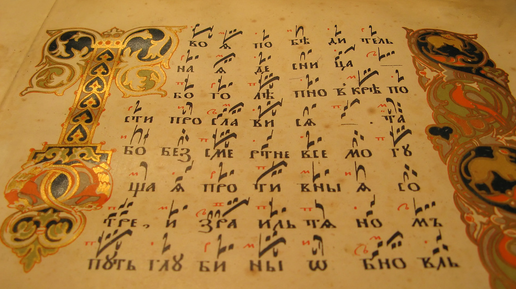 Т ВО Ѧ ПО БѢ ДИ ТЕЛЬ
НА Ѧ ДЕ СНИ ЦА
БО ГО ЛѢ ПНО В КРѢ ПО
СТИ ПРО СЛА ВИ СѦ ТА
БО БЕЗ СМЕ РТНЕ ВСЕ МО ГУ
ЩА Ѧ ПРО ТИ ВНЫ Ѧ СО
ТРЕ, И ЗРА ИЛЬ ТѦ НО МЪ
ПУТЬ ГЛУ БИ НЫ Ѡ БНО ВЛЬ